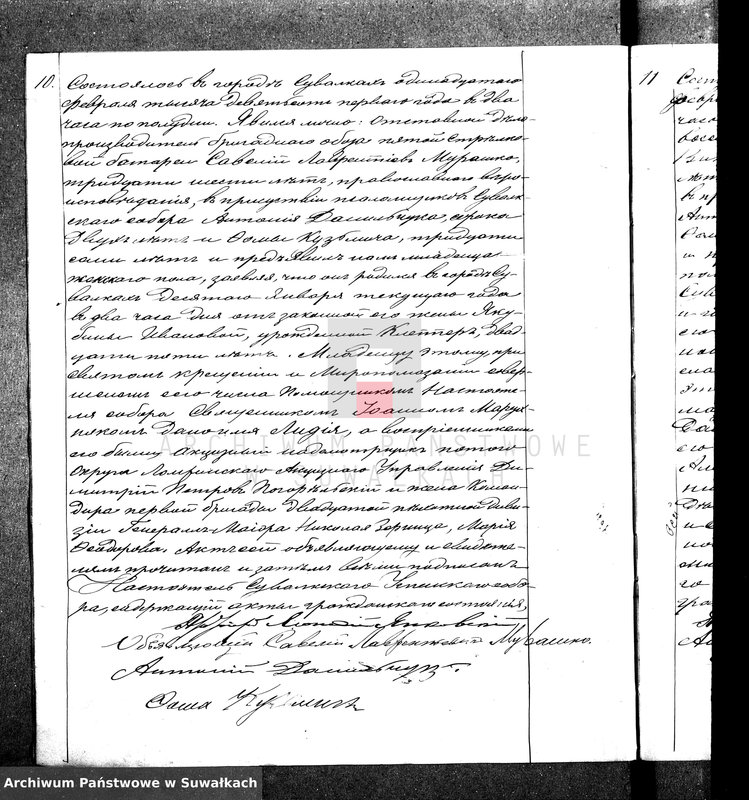 10.
Состоялось въ городѣ Сувалкахъ одинадцатаго
Февраля тысяча девятьсотъ перваго года въ два
часа по полудни. Явился лично: Отставной дѣло-
производитель бригаднаго обоза пятой Стрѣлко-
вой батареи Савелій Лаврентіевъ Мурашко,
тридцати шести лѣтъ, православнаго вѣро-
исповѣданія, въ присутствіи псаломщиковъ Сувалк-
скаго собора Антонія Данильчука, сорока
двухъ лѣтъ и Ѳомы Кузьмича, тридцати
семи лѣтъ и предъявилъ намъ младенца
женскаго пола, заявляя, что онъ родился въ городѣ Су-
валкахъ десятаго Января текущаго года
въ два часа дня отъ законной его жены Яку-
бины Ивановой, урожденной двад-
цати пяти лѣтъ. Младенцу этому, при
Святомъ крещеніи и Миропомазаніи совер-
шенномъ сего числа Помощникомъ Настояте-
ля собора Священникомъ Іоанномъ
дано имя Лидія, а воспріемниками
его были: Акцизный надсмотрщикъ пятаго
округа Ломжинскаго Акцизнаго Управленія Ди-
митрій Петровъ и жена Коман-
дира первой бригады двадцатой пѣхотной диви-
зіи Генералъ-Маіора Николая Марія
Ѳеодорова. Актъ сей объявляющему и свидѣте-
лямъ прочитанъ и затѣмъ всѣми подписанъ
Настоятель Сувалкскаго Успенскаго собо-
ра, содержащій акты гражданскаго состоянія,
Объявляющій Савелій Лаврентіевъ Мурашко.
Антоній Данильчукъ.
Ѳома Кузьмичъ
11
ARCHIWUM PAŃSTWOWE
SUWAŁKACH
Archiwum Państwowe w Suwałkach